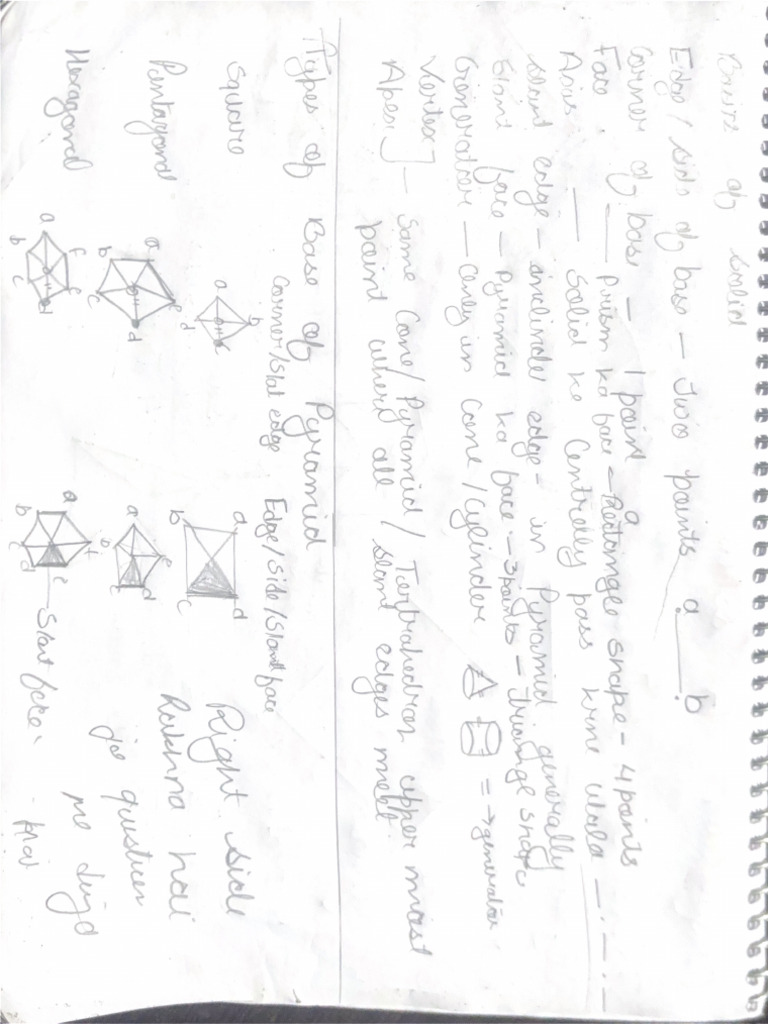 Basics of Solid
Edge/side of base - Two points a b
Corner of base - 1 point
Face - Prism ka face - Rectangle shape - 4 points
Axis - Solid ke Centrally pass krne wala - . - . -
slant edge - inclinde edge - in Pyramid generally
Slant face - Pyramid ka face - 3 points - Triangle shape
Generator - Only in Cone/Cylinder = → generator
Vertex
Apex ] - Same Cone/Pyramid/ upper most
point where all slant edges
Types of Base of Pyramid
Corner/Slat edge Edge/Side/Slant face
Square a b c d a b c d
Pentagonal a b c d e a b c d e
Hexagonal a b c d e f a b c d e f
Slant face
Right side
Rakhna hai
jo question
me